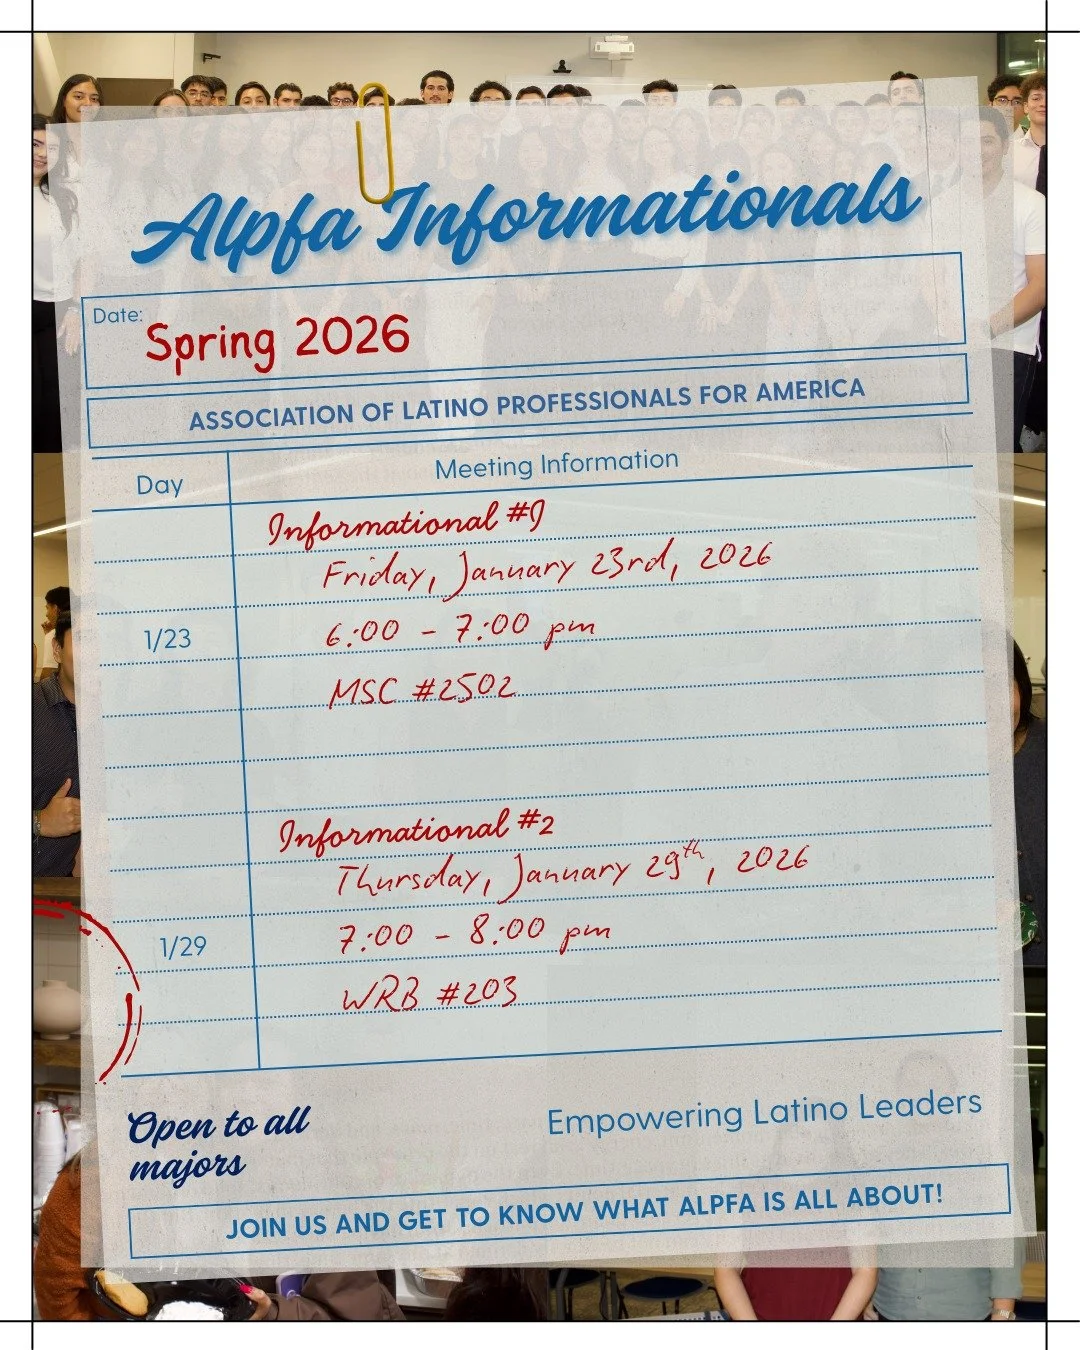 Alpfa Informationals
Date:
Spring 2026
ASSOCIATION OF LATINO PROFESSIONALS FOR AMERICA
Day
Meeting Information
Informational #1
Friday, January 23rd, 2026
1/23
6:00 - 7:00 pm
MSC #2502
Informational #2
Thursday, January 29th, 2026
1/29
7:00 - 8:00 pm
WRB #203
Open to all
majors
Empowering Latino Leaders
JOIN US AND GET TO KNOW WHAT ALPFA IS ALL ABOUT!